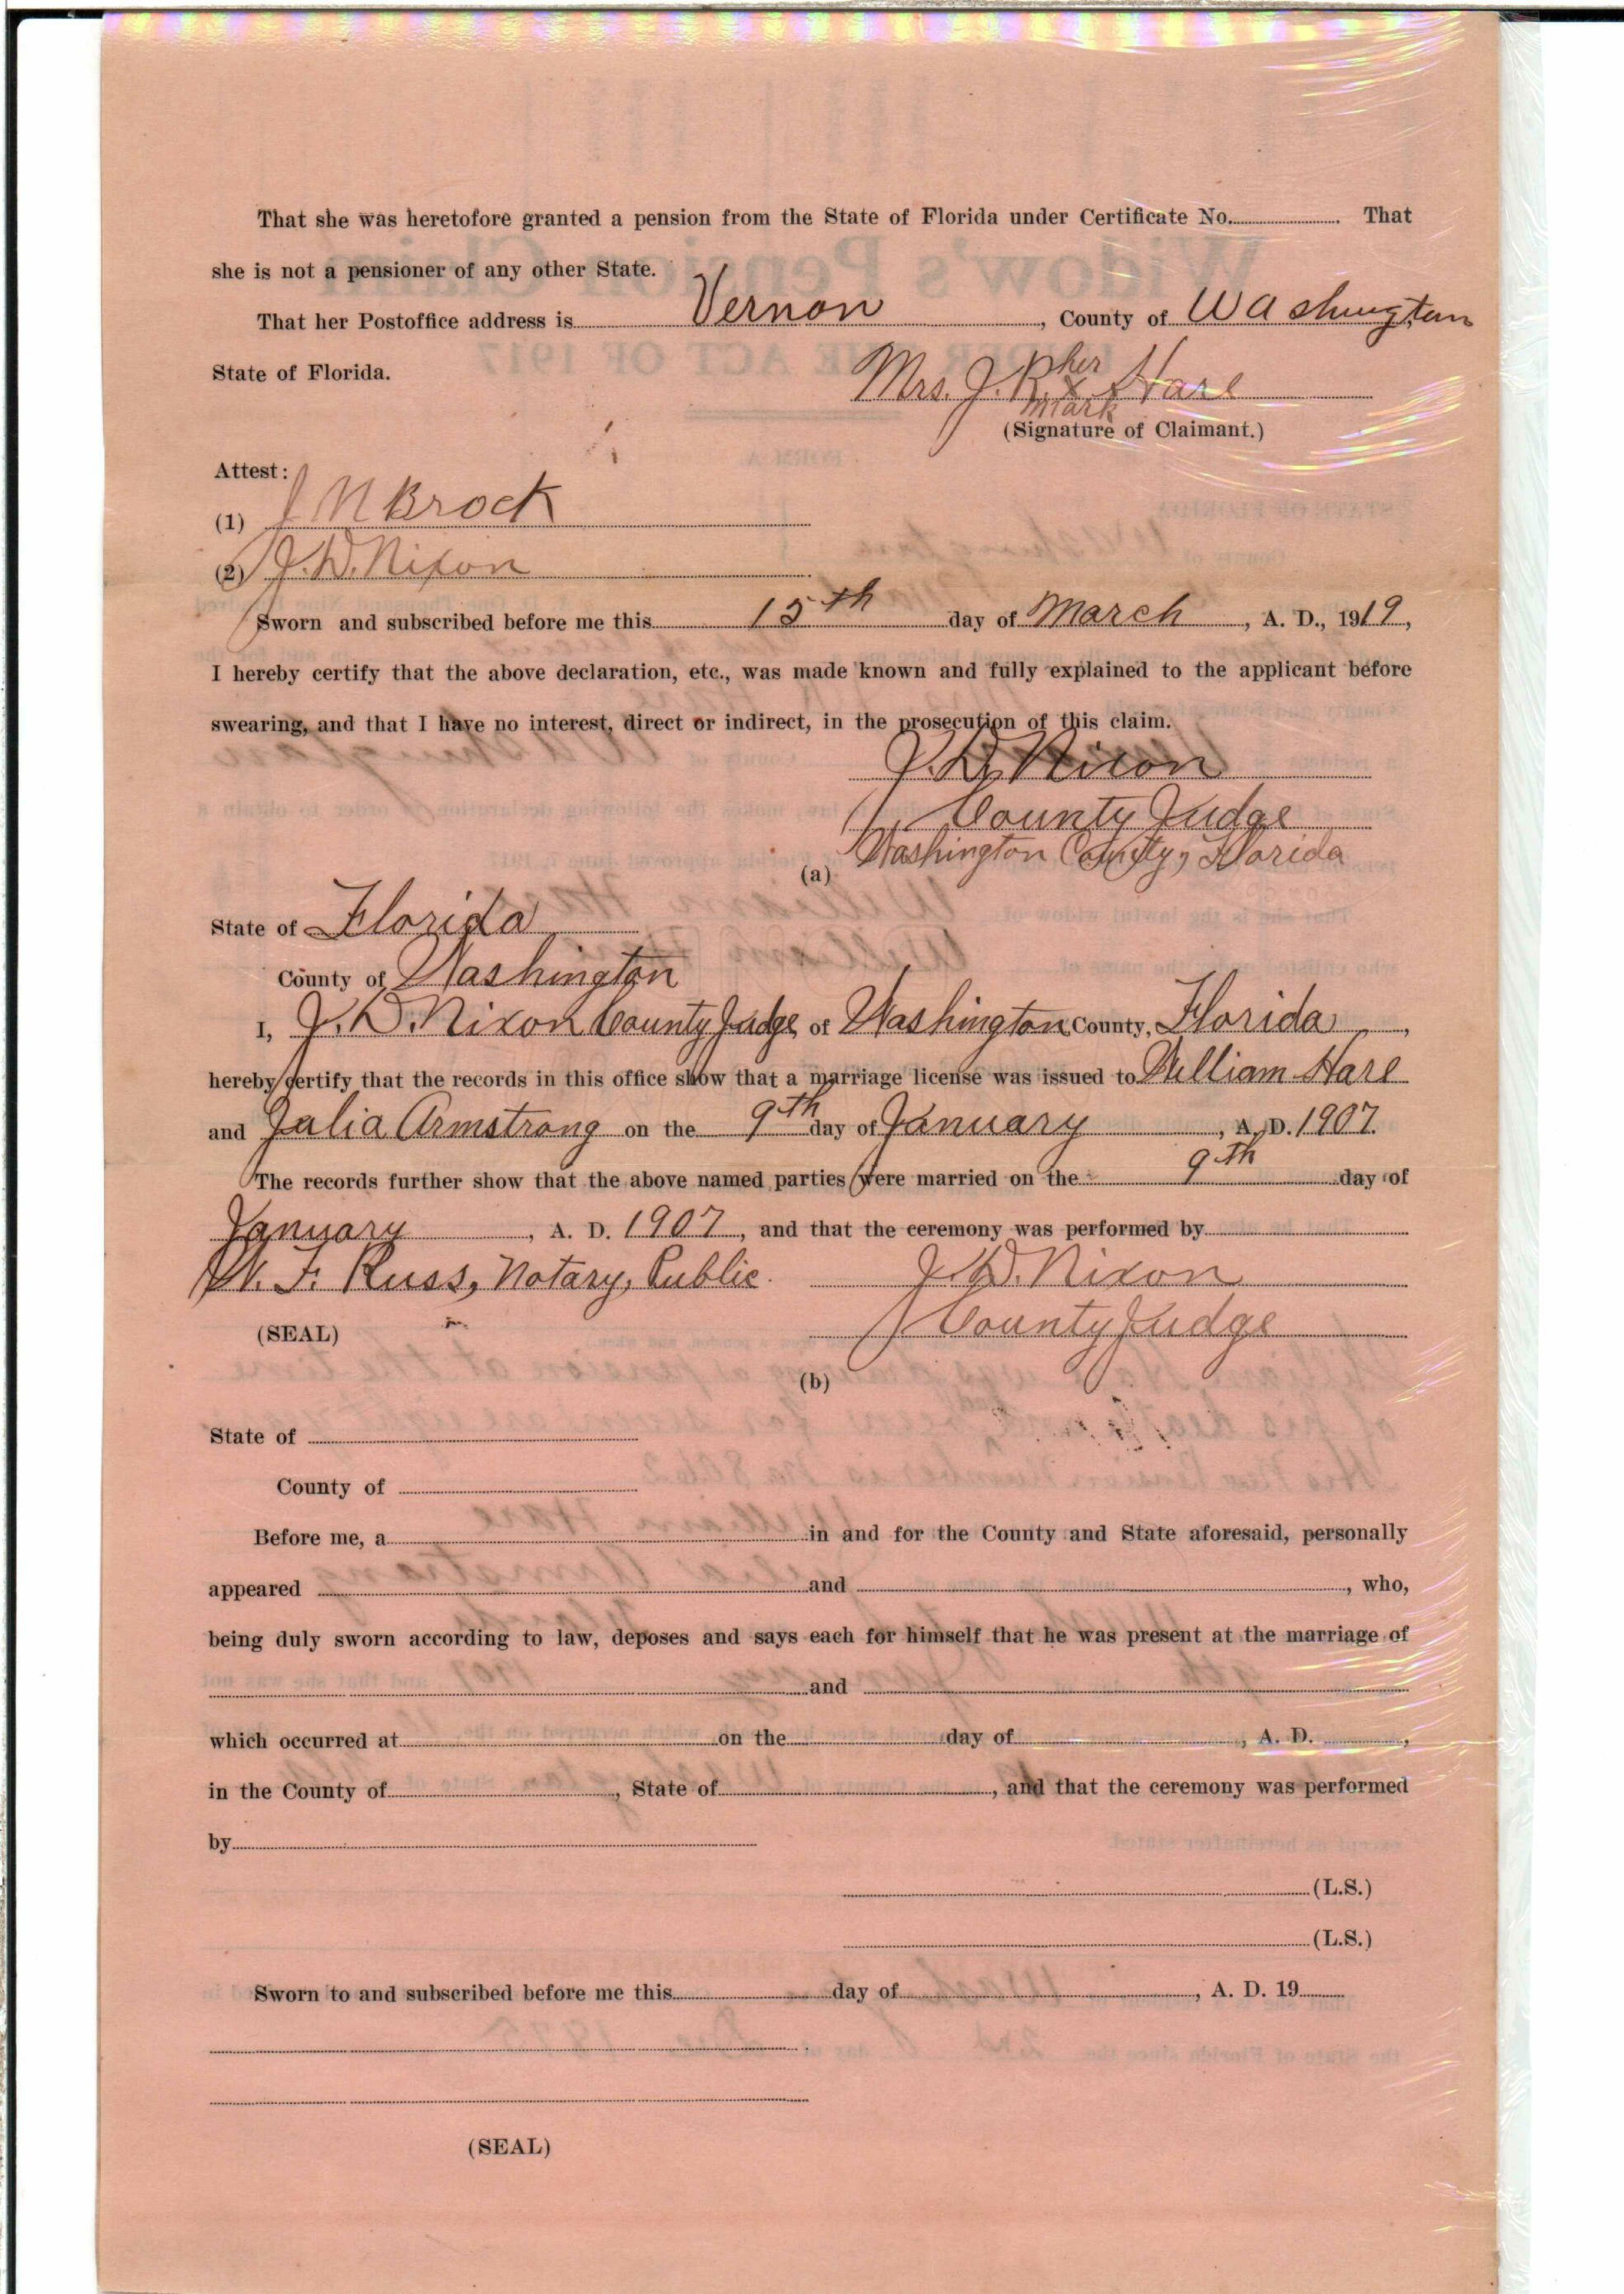 That she was heretofore granted a pension from the State of Florida under Certificate No. That
she is not a pensioner of any other State.
That her Postoffice address is Vernon, County of Washington
State of Florida.
Mrs. J. R. her x mark Hare
(Signature of Claimant.)
Attest:
(1) J N Brock
(2) J. D. Nixon
Sworn and subscribed before me this 15th day of March, A. D., 1919,
I hereby certify that the above declaration, etc., was made known and fully explained to the applicant before
swearing, and that I have no interest, direct or indirect, in the prosecution of this claim.
J. D. Nixon
County Judge
Washington County, Florida
(a)
State of Florida
County of Washington
I, J. D. Nixon County Judge of Washington County, Florida,
hereby certify that the records in this office show that a marriage license was issued to William Hare
and Julia Armstrong on the 9th day of January, A. D. 1907.
The records further show that the above named parties were married on the 9th day of
January, A. D. 1907, and that the ceremony was performed by
W. F. Russ, Notary, Public. J. D. Nixon
County Judge
(SEAL)
(b)
State of
County of
Before me, a in and for the County and State aforesaid, personally
appeared and , who,
being duly sworn according to law, deposes and says each for himself that he was present at the marriage of
and
which occurred at on the day of , A. D. ,
in the County of , State of , and that the ceremony was performed
by
(L.S.)
(L.S.)
Sworn to and subscribed before me this day of , A. D. 19
(SEAL)